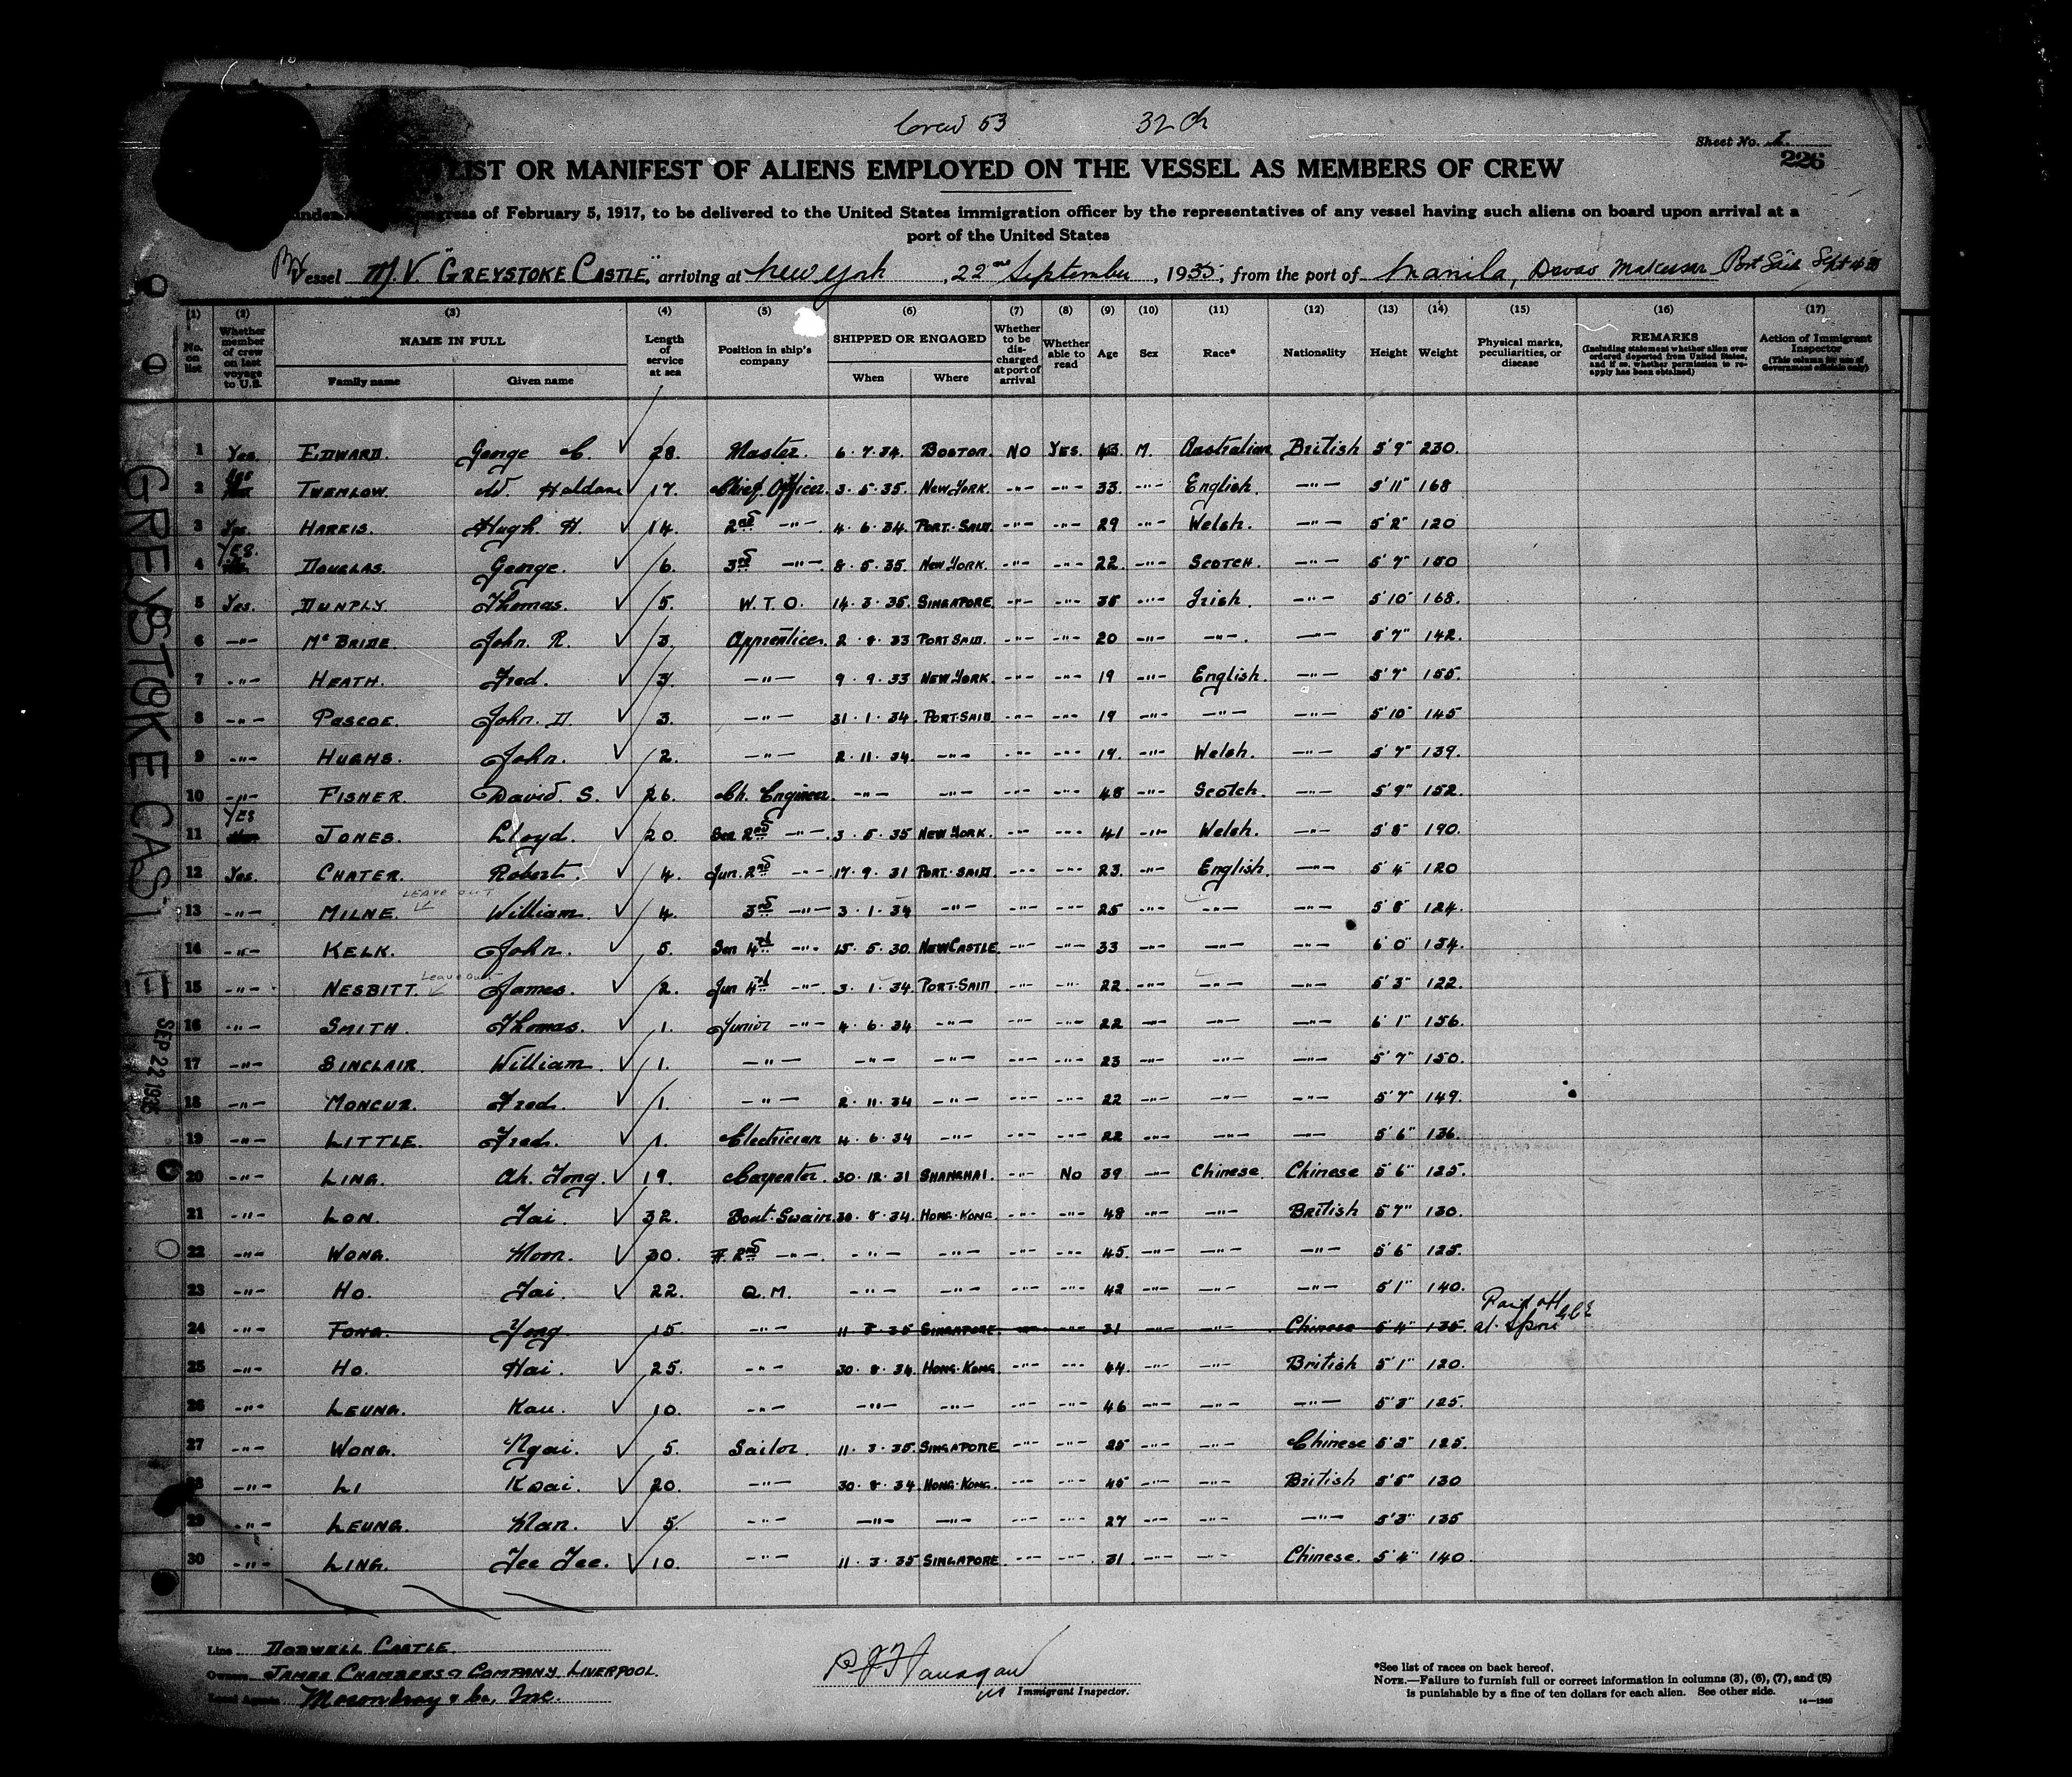 Crew 53 32 Ch
Sheet No. I
226
LIST OR MANIFEST OF ALIENS EMPLOYED ON THE VESSEL AS MEMBERS OF CREW
under Congress of February 5, 1917, to be delivered to the United States immigration officer by the representatives of any vessel having such aliens on board upon arrival at a
port of the United States
Vessel M.V. "GREYSTOKE CASTLE", arriving at New York, 22nd September, 1935, from the port of Manila, Davao Makassar Port Said Sept
(1) (2) (3) (4) (5) (6) (7) (8) (9) (10) (11) (12) (13) (14) (15) (16) (17)
No. on list
Whether member of crew on last voyage to U.S.
NAME IN FULL
Family name Given name
Length of service at sea
Position in ship's company
SHIPPED OR ENGAGED
When Where
Whether to be discharged at port of arrival
Whether able to read
Age Sex Race* Nationality Height Weight
Physical marks, peculiarities, or disease
REMARKS
(Including statement whether alien ever ordered deported from United States, and if so, whether permission to reapply has been obtained)
Action of Immigrant Inspector
(This column for use of Government officials only)
1 Yes. EDWARD. George C. 28. Master. 6.7.34. BOSTON. NO YES. 43. M. Australian British 5'9" 230.
2 Yes TWEMLOW. W. Haldane 17. Chief Officer. 3.5.35. NEW YORK. -"- -"- 33. -"- English. -"- 5'11" 168
3 Yes. HARRIS. Hugh H. 14. 2nd -"- 4.6.34. PORT-SAID. -"- -"- 29 -"- Welsh. -"- 5'2" 120
4 YES. DOUGLAS. George. 6. 3rd -"- 8.5.35. NEW YORK. -"- -"- 22. -"- SCOTCH. -"- 5'7" 150
5 Yes. DUNPLY. Thomas. 5. W.T.O. 14.3.35. SINGAPORE. -"- -"- 35 -"- Irish. -"- 5'10" 168.
6 -"- McBRIDE. John R. 3. Apprentice. 2.8.33 PORT SAID. -"- -"- 20 -"- -"-. -"- 5'7" 142.
7 -"- HEATH. Fred. 3. -"- 9.9.33 NEW YORK. -"- -"- 19 -"- English. -"- 5'7" 155.
8 -"- PASCOE. John. D. 3. -"- 31.1.34. PORT-SAID -"- -"- 19 -"- -"- -"- 5'10" 145
9 -"- HUGHS. John. 2. -"- 2.11.34. -"- -"- -"- 19. -"- Welsh. -"- 5'7" 139.
10 -"- FISHER. David. S. 26. Ch. Engineer. -"- -"- -"- -"- 48 -"- Scotch. -"- 5'9" 152.
11 YES JONES. Lloyd. 20. Sen 2nd -"- 3.5.35 NEW YORK. -"- -"- 41 -"- Welsh. -"- 5'8" 190.
12 Yes. CHATER. Robert. 4. Jun. 2nd -"- 17.9.31 PORT-SAID. -"- -"- 23. -"- English. -"- 5'4" 120
LEAVE OUT
13 -"- MILNE. William. 4. 3rd -"- 3.1.34 -"- -"- -"- 25 -"- -"- -"- 5'8" 124.
14 -"- KELK. John. 5. Sen 4th -"- 15.5.30. NEWCASTLE. -"- -"- 33 -"- -"- -"- 6'0" 154.
Leave out
15 -"- NESBITT. James. 2. Jun 4th -"- 3.1.34. PORT-SAID -"- -"- 22. -"- -"- -"- 5'3" 122.
16 -"- SMITH. Thomas. 1. Junior -"- 4.6.34 -"- -"- -"- 22 -"- -"- -"- 6'1" 156.
17 -"- SINCLAIR. William. 1. -"- -"- -"- -"- -"- 23 -"- -"- -"- 5'7" 150.
18 -"- MONCUR. Fred. 1. -"- 2.11.34 -"- -"- -"- 22 -"- -"- -"- 5'7" 149.
19 -"- LITTLE. Fred. 1. Electrician 4.6.34 -"- -"- -"- 22 -"- -"- -"- 5'6" 136.
20 -"- LING. Ah. Fong. 19. Carpenter. 30.12.31 SHANGHAI. -"- No 39 -"- Chinese. Chinese 5'6" 125.
21 -"- LON. Tai. 32. Boat-Swain. 30.8.34. HONG-KONG. -"- -"- 48 -"- -"- British 5'7" 130.
22 -"- WONG. Moon. 30. 2nd -"-. -"- -"- -"- -"- 45. -"- -"- -"- 5'6" 125.
23 -"- HO. Tai. 22. Q.M. -"- -"- -"- -"- 42 -"- -"- -"- 5'1" 140.
24 -"- FONG. Yong. 15. -"- 11.3.35 SINGAPORE. -"- -"- 31 -"- -"- Chinese 5'4" 135. Paid off at S'pore GCE
25 -"- HO. Hai. 25. -"- 30.8.34. HONG-KONG. -"- -"- 44. -"- -"- British 5'1" 120.
26 -"- LEUNG. Kau. 10. -"- -"- -"- -"- -"- 46 -"- -"- -"- 5'3" 125.
27 -"- WONG. Ngai. 5. Sailor. 11.3.35. SINGAPORE -"- -"- 25 -"- -"- Chinese 5'3" 125.
28 -"- LI Kwai. 20. -"- 30.8.34 HONG-KONG. -"- -"- 45 -"- -"- British 5'5" 130
29 -"- LEUNG. Man. 5. -"- -"- -"- -"- -"- 27 -"- -"- -"- 5'3" 135
30 -"- LING. Fee Fee. 10. -"- 11.3.35 SINGAPORE. -"- -"- 31. -"- -"- Chinese. 5'4" 140.
GREYSTOKE CASTLE
SEP 22 1935
Line DODWELL CASTLE.
Owners JAMES CHAMBERS & COMPANY, LIVERPOOL.
Local Agents & Co., Inc.
P J Flanagan
Immigrant Inspector.
*See list of races on back hereof.
NOTE.—Failure to furnish full or correct information in columns (3), (6), (7), and (8)
is punishable by a fine of ten dollars for each alien. See other side.
14—1240